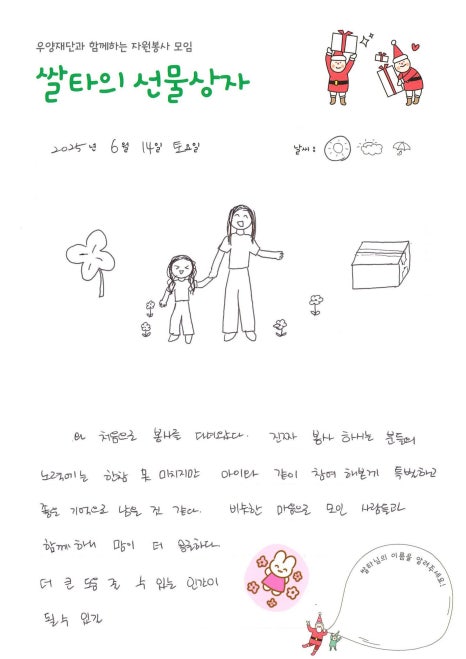 우양재단과 함께하는 자원봉사 모임
쌀타의 선물상자
2025년 6월 14일 토요일 날씨:
처음으로 봉사를 다녀왔다. 진짜 봉사 하시는 분들의
노력에는 한참 못 미치지만 아이랑 같이 참여 해본게 특별하고
좋은 기억으로 남을 것 같다. 비슷한 마음으로 모인 사람들과
함께 해서 맘이 더
더 큰 도움 줄 수 있는 인간이
될 수
쌀타님의 이름을 알려주세요!